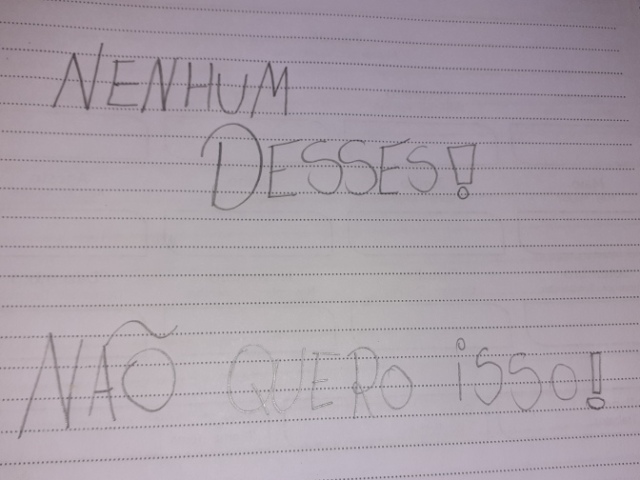 NENHUM
DESSES!
NÃO QUERO iSSO!